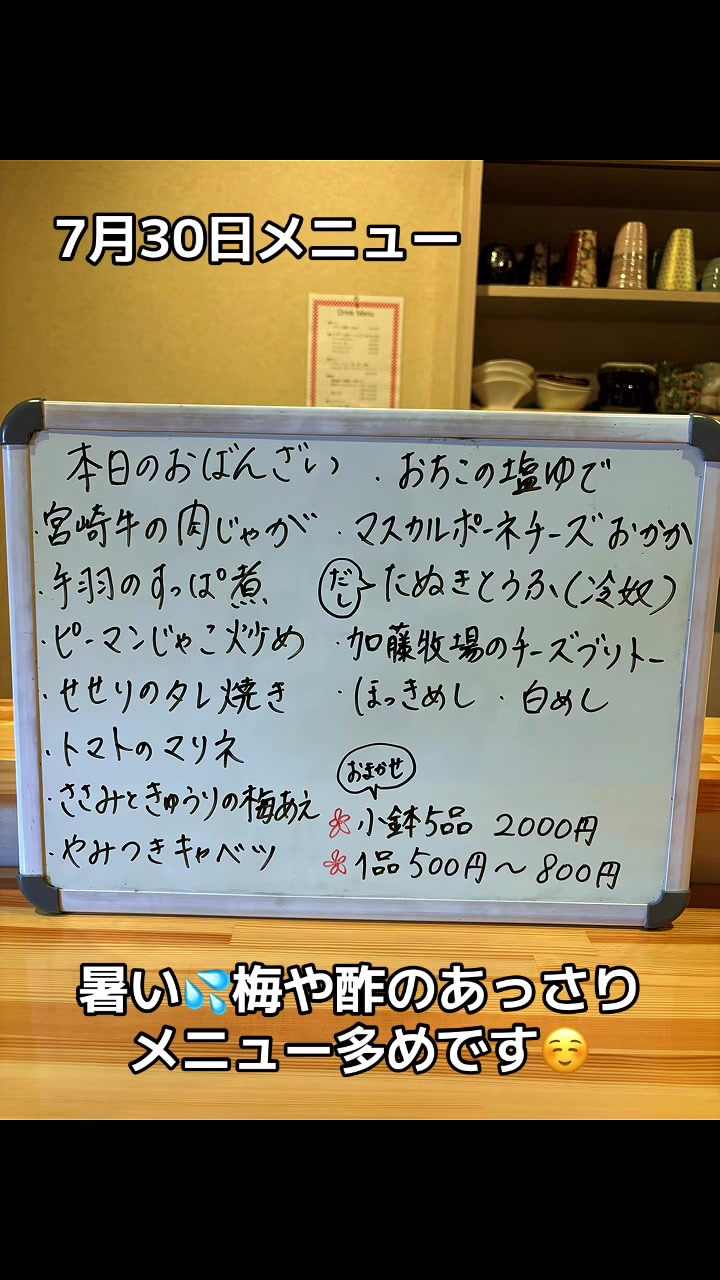 7月30日メニュー
Drink Menu
本日のおばんざい
・宮崎牛の肉じゃが
・手羽のすっぱ煮
・ピーマンじゃこ炒め
・せせりのタレ焼き
・トマトのマリネ
・ささみときゅうりの梅あえ
・やみつきキャベツ
・おちこの塩ゆで
・マスカルポーネチーズおかか
だし たぬきとうふ(冷奴)
・加藤牧場のチーズブリトー
・ほっきめし ・白めし
おまかせ
小鉢5品 2000円
1品500円〜800円
暑い💦梅や酢のあっさり
メニュー多めです☺️